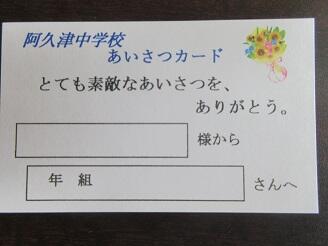 阿久津中学校
あいさつカード
とても素敵なあいさつを、
ありがとう。
様から
年 組
さんへ